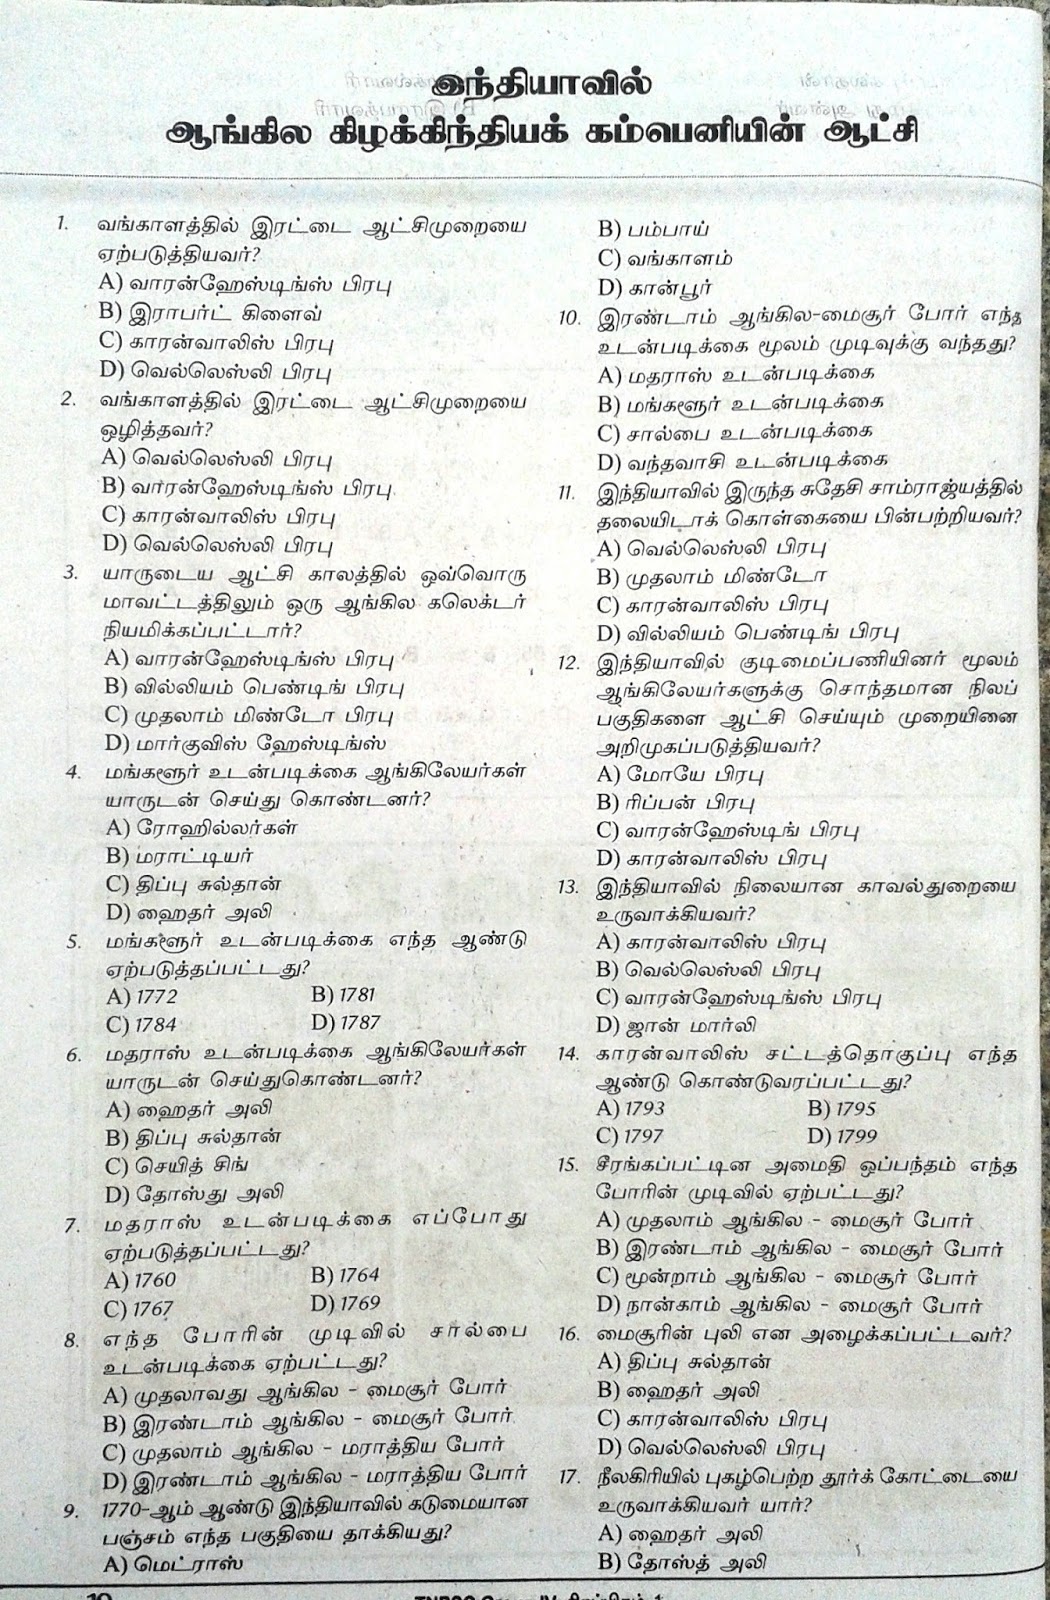 இந்தியாவில்
ஆங்கில கிழக்கிந்தியக் கம்பெனியின் ஆட்சி
1. வங்காளத்தில் இரட்டை ஆட்சிமுறையை
ஏற்படுத்தியவர்?
A) வாரன்ஹேஸ்டிங்ஸ் பிரபு
B) இராபர்ட் கிளைவ்
C) காரன்வாலிஸ் பிரபு
D) வெல்லெஸ்லி பிரபு
2. வங்காளத்தில் இரட்டை ஆட்சிமுறையை
ஒழித்தவர்?
A) வெல்லெஸ்லி பிரபு
B) வாரன்ஹேஸ்டிங்ஸ் பிரபு
C) காரன்வாலிஸ் பிரபு
D) வெல்லெஸ்லி பிரபு
3. யாருடைய ஆட்சி காலத்தில் ஒவ்வொரு
மாவட்டத்திலும் ஒரு ஆங்கில கலெக்டர்
நியமிக்கப்பட்டார்?
A) வாரன்ஹேஸ்டிங்ஸ் பிரபு
B) வில்லியம் பெண்டிங் பிரபு
C) முதலாம் மிண்டோ பிரபு
D) மார்குவிஸ் ஹேஸ்டிங்ஸ்
4. மங்களூர் உடன்படிக்கை ஆங்கிலேயர்கள்
யாருடன் செய்து கொண்டனர்?
A) ரோஹில்லர்கள்
B) மராட்டியர்
C) திப்பு சுல்தான்
D) ஹைதர் அலி
5. மங்களூர் உடன்படிக்கை எந்த ஆண்டு
ஏற்படுத்தப்பட்டது?
A) 1772 B) 1781
C) 1784 D) 1787
6. மதராஸ் உடன்படிக்கை ஆங்கிலேயர்கள்
யாருடன் செய்துகொண்டனர்?
A) ஹைதர் அலி
B) திப்பு சுல்தான்
C) செயித் சிங்
D) தோஸ்து அலி
7. மதராஸ் உடன்படிக்கை எப்போது
ஏற்படுத்தப்பட்டது?
A) 1760 B) 1764
C) 1767 D) 1769
8. எந்த போரின் முடிவில் சால்பை
உடன்படிக்கை ஏற்பட்டது?
A) முதலாவது ஆங்கில - மைசூர் போர்
B) இரண்டாம் ஆங்கில - மைசூர் போர்
C) முதலாம் ஆங்கில - மராத்திய போர்
D) இரண்டாம் ஆங்கில - மராத்திய போர்
9. 1770-ஆம் ஆண்டு இந்தியாவில் கடுமையான
பஞ்சம் எந்த பகுதியை தாக்கியது?
A) மெட்ராஸ்
B) பம்பாய்
C) வங்காளம்
D) கான்பூர்
10. இரண்டாம் ஆங்கில-மைசூர் போர் எந்த
உடன்படிக்கை மூலம் முடிவுக்கு வந்தது?
A) மதராஸ் உடன்படிக்கை
B) மங்களூர் உடன்படிக்கை
C) சால்பை உடன்படிக்கை
D) வந்தவாசி உடன்படிக்கை
11. இந்தியாவில் இருந்த சுதேசி சாம்ராஜ்யத்தில்
தலையிடாக் கொள்கையை பின்பற்றியவர்?
A) வெல்லெஸ்லி பிரபு
B) முதலாம் மிண்டோ
C) காரன்வாலிஸ் பிரபு
D) வில்லியம் பெண்டிங் பிரபு
12. இந்தியாவில் குடிமைப்பணியினர் மூலம்
ஆங்கிலேயர்களுக்கு சொந்தமான நிலப்
பகுதிகளை ஆட்சி செய்யும் முறையினை
அறிமுகப்படுத்தியவர்?
A) மோயே பிரபு
B) ரிப்பன் பிரபு
C) வாரன்ஹேஸ்டிங் பிரபு
D) காரன்வாலிஸ் பிரபு
13. இந்தியாவில் நிலையான காவல்துறையை
உருவாக்கியவர்?
A) காரன்வாலிஸ் பிரபு
B) வெல்லெஸ்லி பிரபு
C) வாரன்ஹேஸ்டிங்ஸ் பிரபு
D) ஜான் மார்லி
14. காரன்வாலிஸ் சட்டத்தொகுப்பு எந்த
ஆண்டு கொண்டுவரப்பட்டது?
A) 1793 B) 1795
C) 1797 D) 1799
15. சீரங்கப்பட்டின அமைதி ஒப்பந்தம் எந்த
போரின் முடிவில் ஏற்பட்டது?
A) முதலாம் ஆங்கில - மைசூர் போர்
B) இரண்டாம் ஆங்கில - மைசூர் போர்
C) மூன்றாம் ஆங்கில - மைசூர் போர்
D) நான்காம் ஆங்கில - மைசூர் போர்
16. மைசூரின் புலி என அழைக்கப்பட்டவர்?
A) திப்பு சுல்தான்
B) ஹைதர் அலி
C) காரன்வாலிஸ் பிரபு
D) வெல்லெஸ்லி பிரபு
17. நீலகிரியில் புகழ்பெற்ற தூர்க் கோட்டையை
உருவாக்கியவர் யார்?
A) ஹைதர் அலி
B) தோஸ்த் அலி